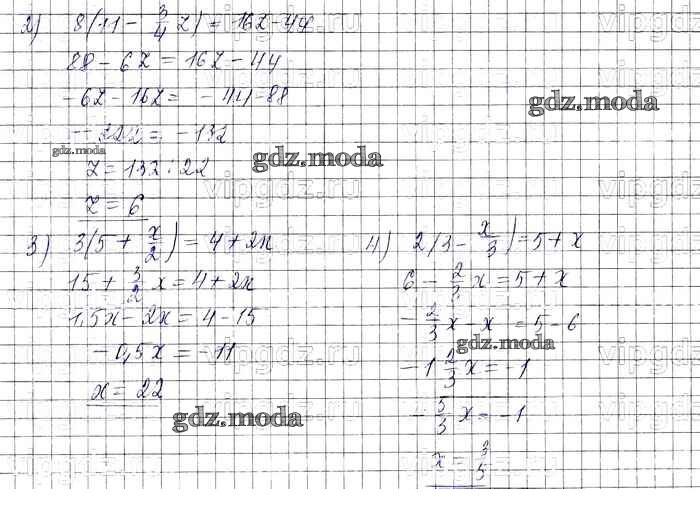 2) 8(11 - 3/4 z) = 16z - 44
88 - 6z = 16z - 44
-6z - 16z = -44 - 88
-22z = -132
z = 132 : 22
z = 6
3) 3(5 + x/2) = 4 + 2x
15 + 3/2 x = 4 + 2x
1,5x - 2x = 4 - 15
-0,5x = -11
x = 22
4) 2(3 - x/3) = 5 + x
6 - 2/3 x = 5 + x
-2/3 x - x = 5 - 6
-1 2/3 x = -1
-5/3 x = -1
x = 3/5
gdz.moda
gdz.moda
gdz.moda
gdz.moda
gdz.moda
vipgdz.ru
vipgdz.ru
vipgdz.ru